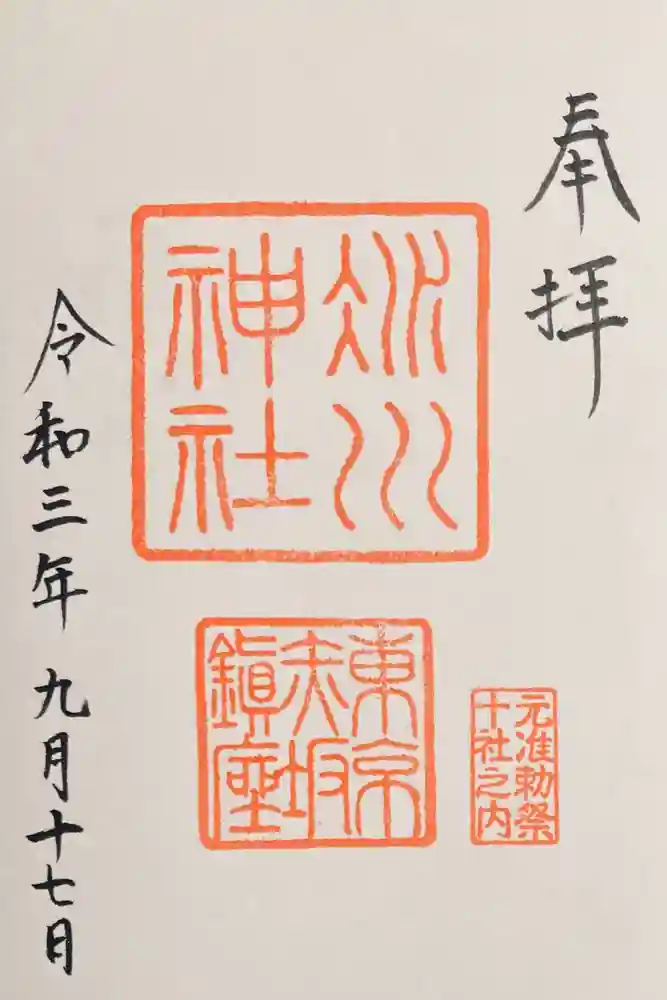 奉拝
氷川
神社
東京
赤坂
鎮座
元准勅祭
十社之内
令和三年九月十七日